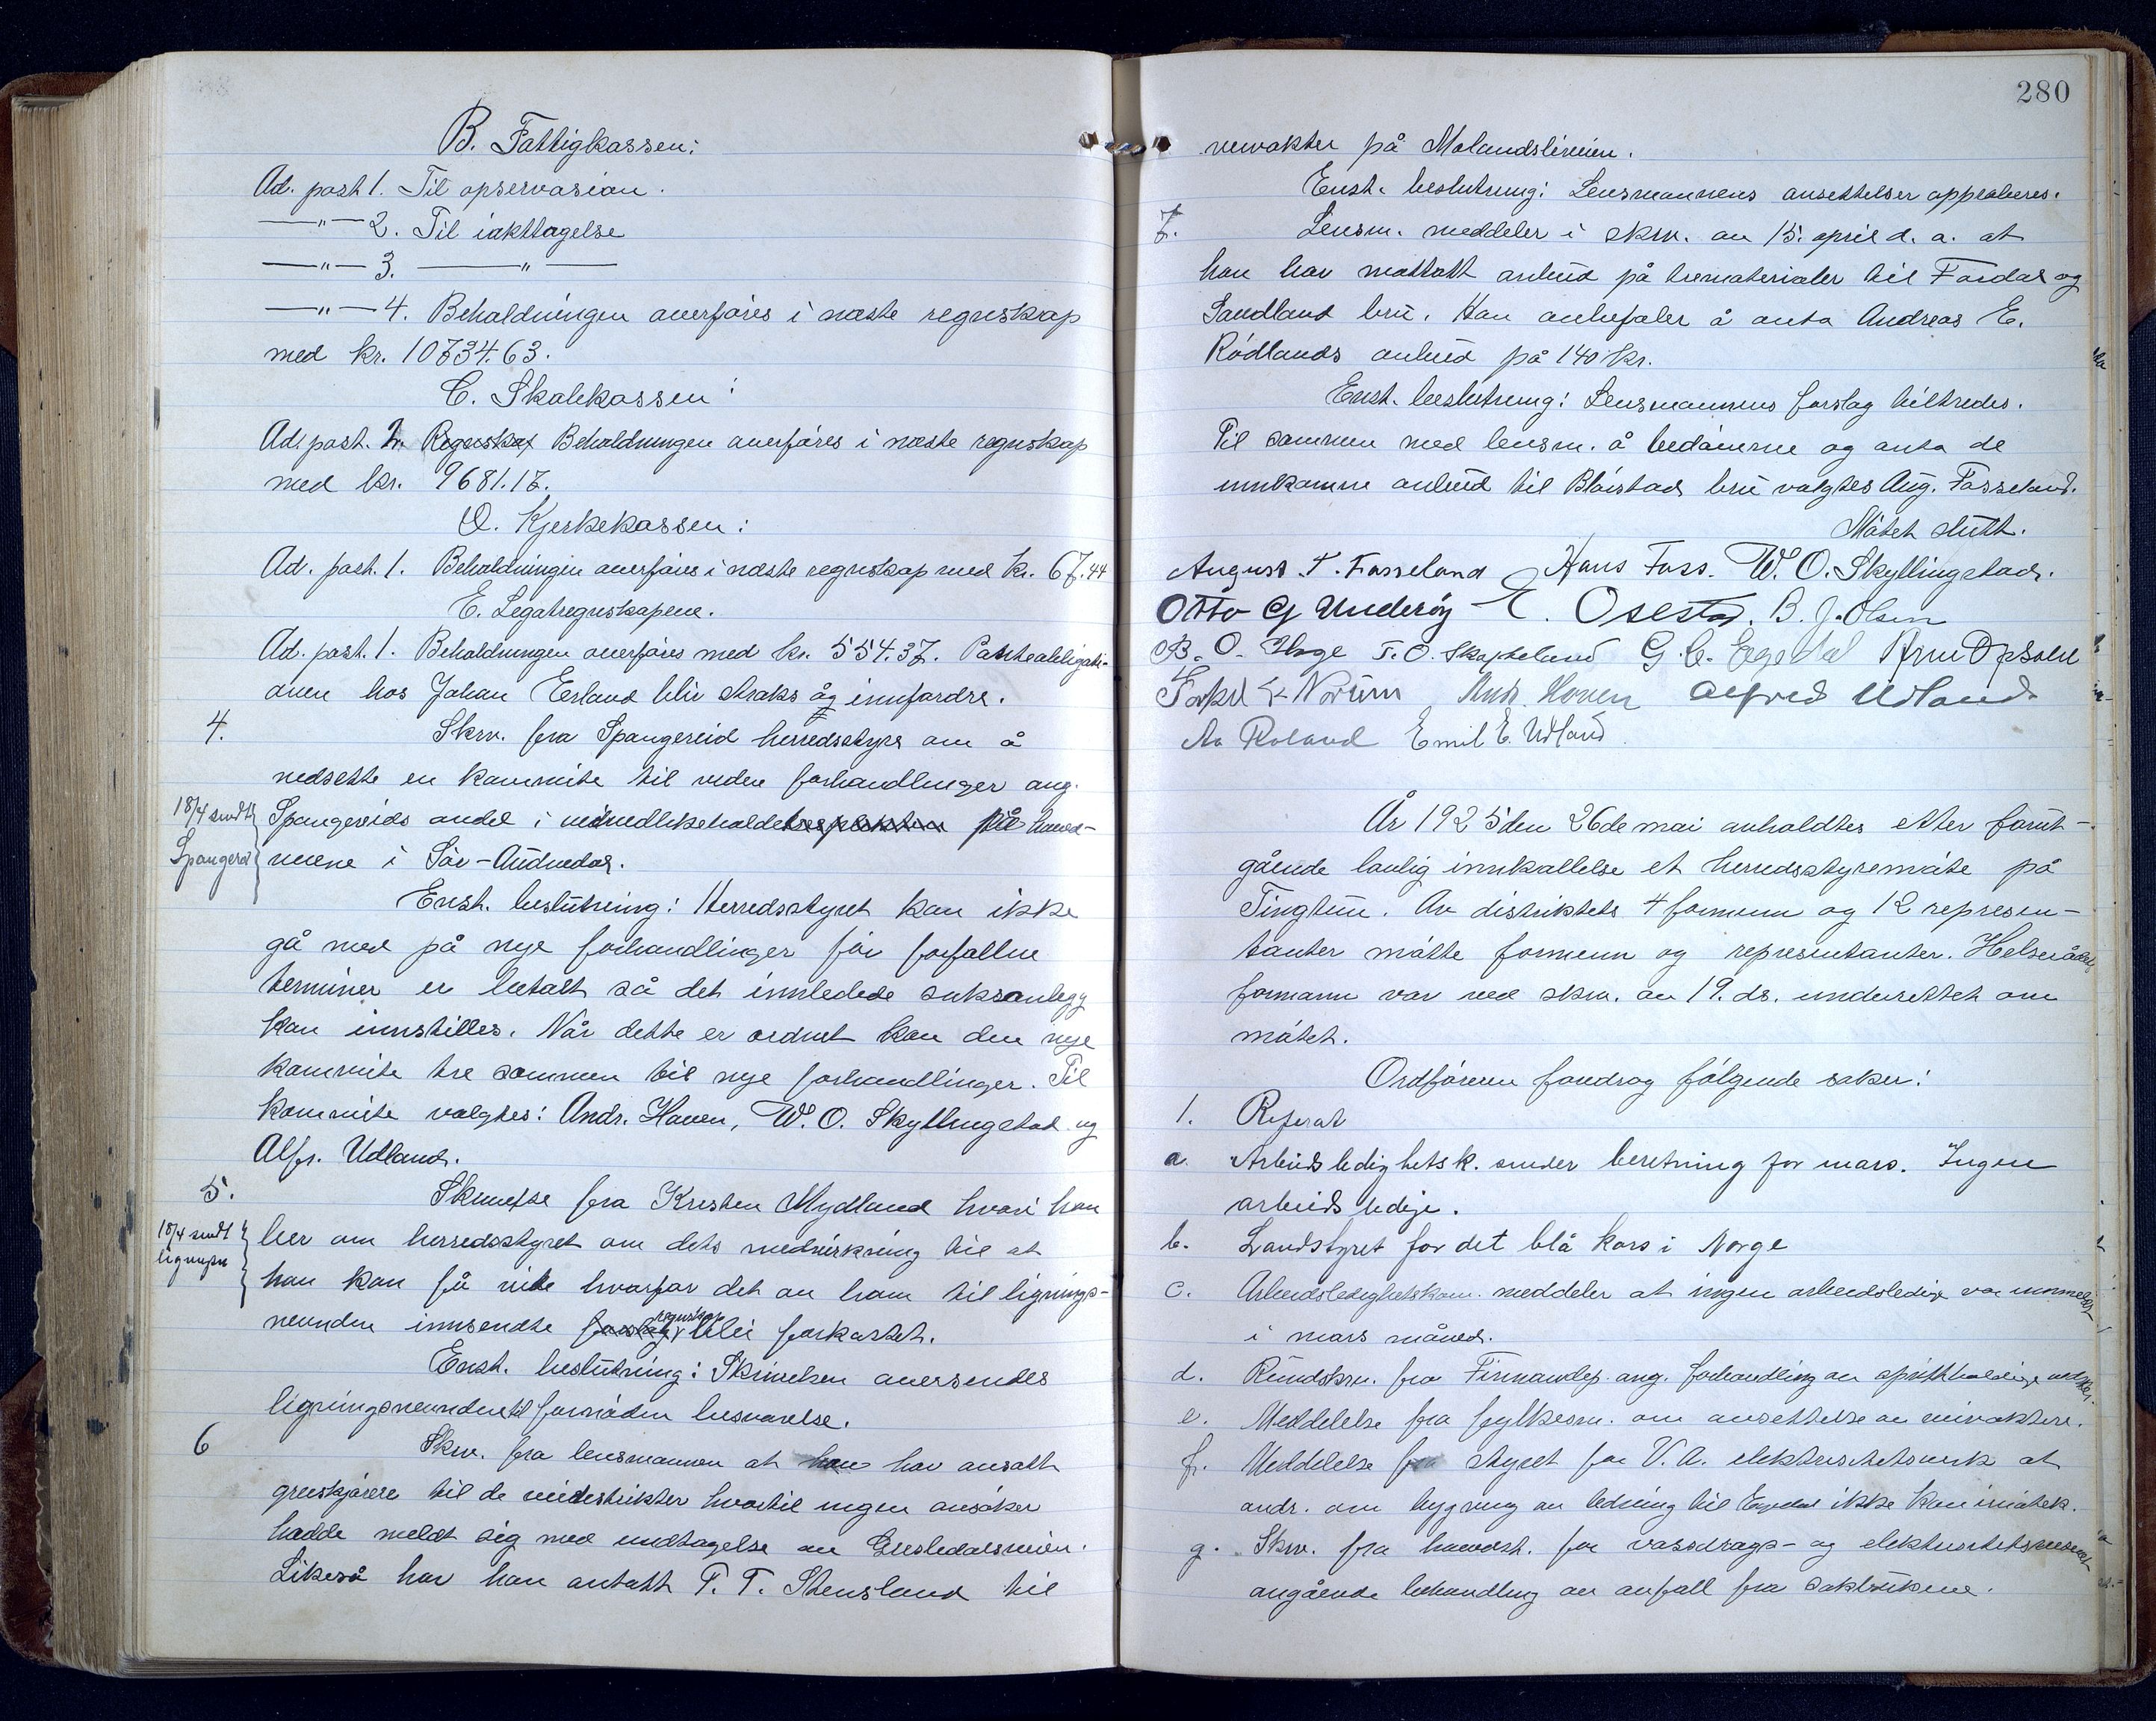 B. Fattigkassen:
Ad. post 1. Til opservasion.
—"— 2. Til iakttagelse
—"— 3. —"—
—"— 4. Beholdningen overføres i næste regnskap
med kr. 10734.63.
C. Skolekassen:
Ad. post. 1. Regnskap Beholdningen overføres i næste regnskap
med kr. 9681.17.
D. Kjerkekassen:
Ad. post. 1. Beholdningen overføres i næste regnskap med kr. 67.44
E. Legatregnskapene.
Ad. post. 1. Beholdningen overføres med kr. 554.37. Panteobligati-
onen hos Johan Erland blir straks åg innfordre.
4. Skrv. fra Spangereid herredsstyre om å
nedsette en kommite til videre forhandlinger ang.
18/4 sendt Spangereids andel i veivedlikeholdet på hoved-
Spangerei veiene i Sør-Audnedal.
Enst. beslutning: Herredsstyret kan ikke
gå med på nye forhandlinger før forfallne
terminer er betalt så det innledede saksanlegg
kan innstilles. Når dette er ordnet kan den nye
kommite tre sammen til nye forhandlinger. Til
kommite valgtes: Andr. Haven, W. O. Skyllingstad og
Alfr. Udland.
5. Skrivelse fra Kristen Mydland hvori han
18/4 sendt ber om herredsstyret om dets medvirkning til at
ligningsn han kan få vite hvorfor det av ham til lignings-
nevnden innsendte forslag regnskap blei forkastet.
Enst. beslutning: Skrivelsen oversendes
ligningsnevnden til fornøden besvarelse.
6 Skrv. fra lensmannen at han har ansatt
gruskjørere til de veidistrikter hvortil ingen ansøker
hadde meldt sig med undtagelse av Gusledalsveien.
Likeså har han antatt T. T. Stensland til
280
veivakter på Molandsliveien.
Enst. beslutning: Lensmannens ansettelser approberes.
7. Lensm. meddeler i skrv. av 15. april d. a. at
han har mottatt anbud på trematerialer til Fardal og
Sandland bru. Han anbefaler å anta Andreas E.
Rødlands anbud på 140 kr.
Enst. beslutning: Lensmannens forslag tiltredes.
Til sammen med lensm. å bedømme og anta de
innkomne anbud til Bløistad bru valgtes Aug. Fasseland.
Møtet slutt.
August. T. Fasseland Hans Foss. W. O. Skyllingstad.
Otto G Underøy E. Osestad. B. J. Olsen
B. O. Hage T. O. Skofteland G. C. Egedal Arne Opsahl
Torkel Norum Andr. Hoven Alfred Udland
Aa Roland Emil E. Udland.
År 1925 den 26de mai avholdtes etter forut-
gående lovlig innkallelse et herredsstyremøte på
Tingtun. Av distriktets 4 formenn og 12 represen-
tanter møtte formenn og representanter. Helseråds
formann var ved skrv. av 19. ds. underrettet om
møtet.
Ordføreren foredrog følgende saker:
1. Referat
a. Arbeidsledighetsk. sender beretning for mars. Ingen
arbeidsledige.
b. Landstyret for det blå kors i Norge
c. Arbeidsledighetskom. meddeler at ingen arbeidsledige var innmeldt
i mars måned.
d. Rundskrv. fra Finnansdep. ang. forhandling av spritholdige vesker.
e. Meddelelse fra fylkesm. om ansettelse av veivaktere.
f. Meddelelse fra styret for V. A. elektrisitetsverk at
andr. om bygning av ledning til Egedal ikke kan imøtek.
g. Skrv. fra hovedst. for vassdrags- og elektrisitetsvesenet
angående behandling av avfall fra sakbrukene.